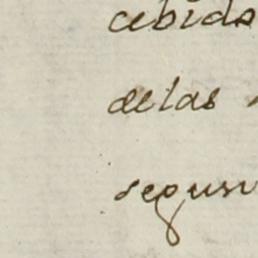 cebida
de las
segun